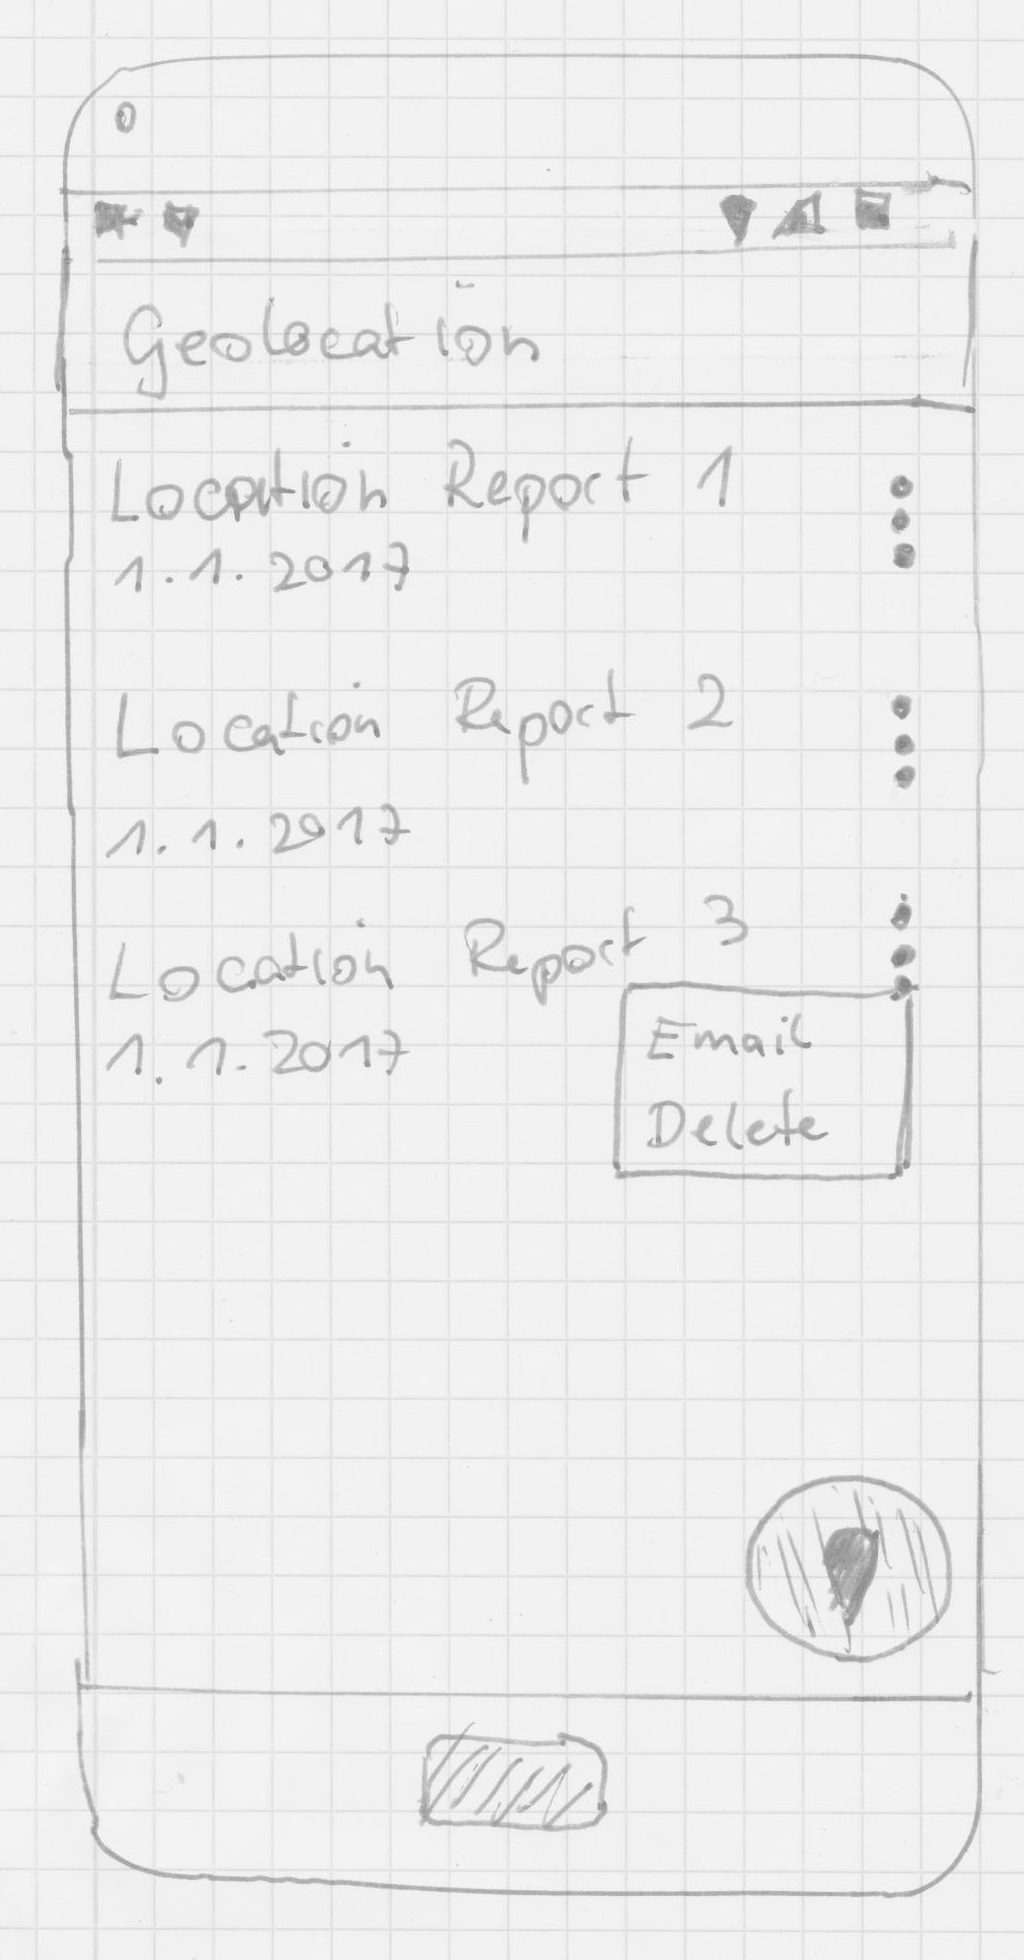 Geolocation
Location Report 1
1.1.2017
Location Report 2
1.1.2017
Location Report 3
1.1.2017
Email
Delete